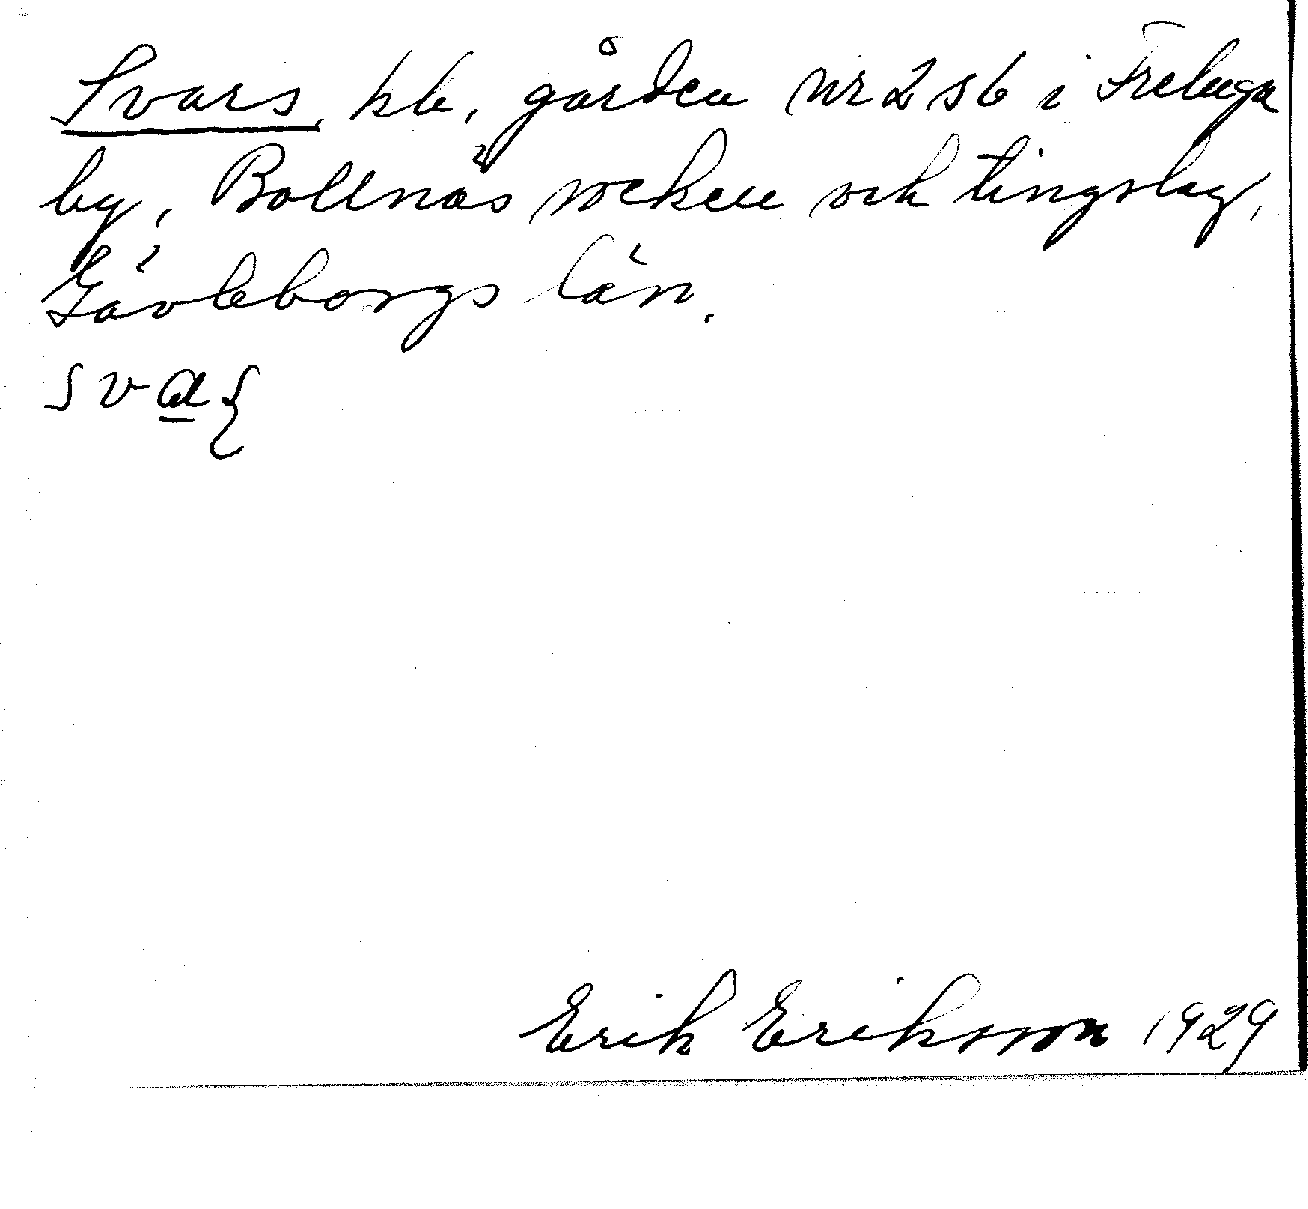 Svars, hb, gården nr 2 s6 i Freluga
by, Bollnäs socken och tingslag,
Gävleborgs län.
sva
Erik Eriksson 1929